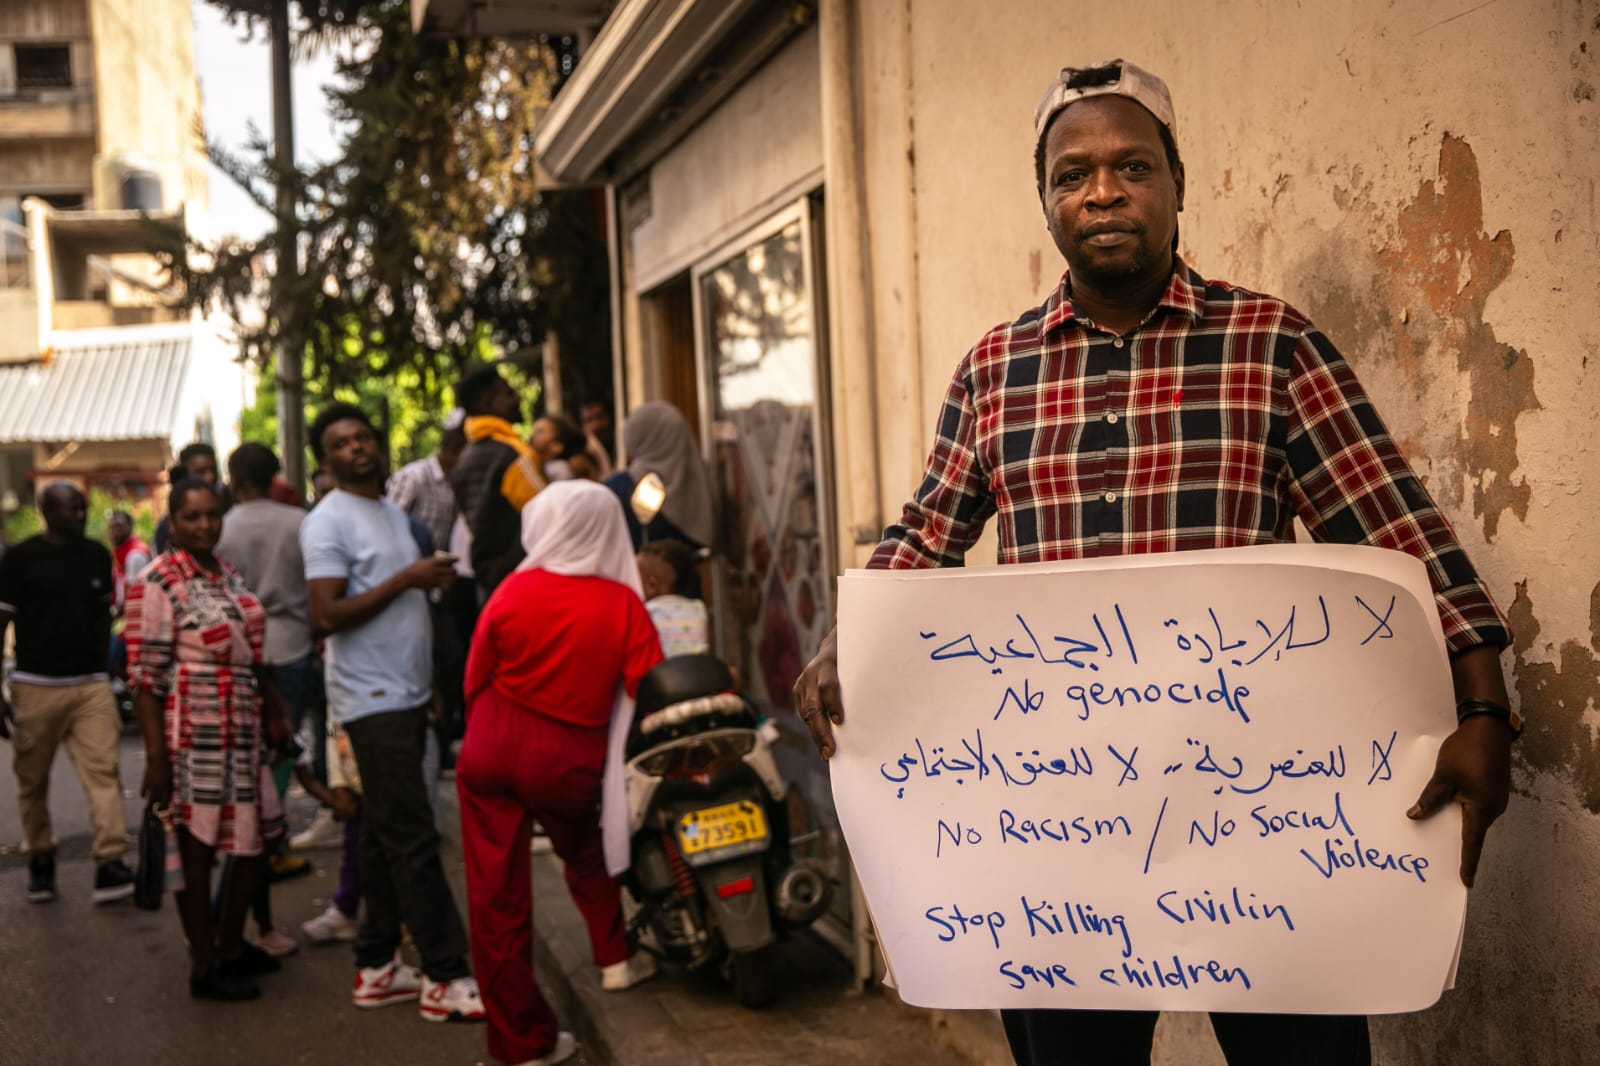 لا للإبادة الجماعية
No genocide
لا للعنصرية .. لا للعنف الاجتماعي
No Racism / No Social
Violence
Stop Killing Civilin
Save children
73591